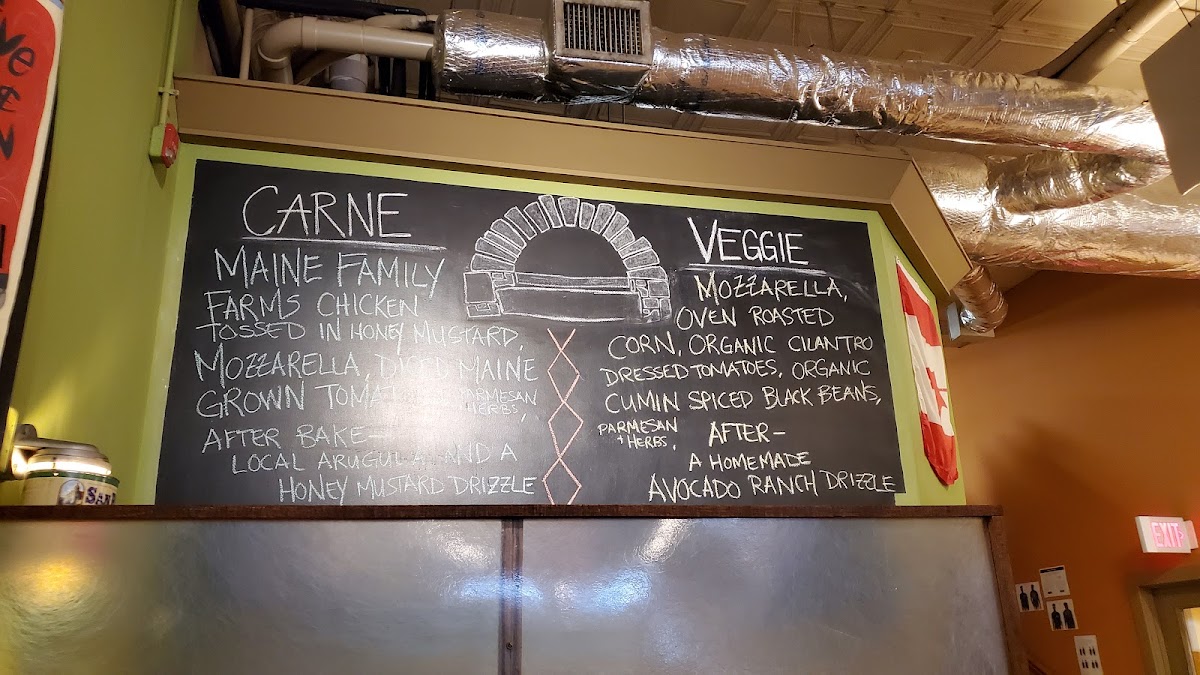 CARNE
MAINE FAMILY
FARMS CHICKEN
TOSSED IN HONEY MUSTARD,
MOZZARELLA, DICED MAINE
GROWN PARMESAN
+ HERBS,
AFTER BAKE-
LOCAL ARUGULA AND A
HONEY MUSTARD DRIZZLE
VEGGIE
MOZZARELLA,
OVEN ROASTED
CORN, ORGANIC CILANTRO
DRESSED TOMATOES, ORGANIC
CUMIN SPICED BLACK BEANS,
PARMESAN
+ HERBS,
AFTER-
A HOMEMADE
AVOCADO RANCH DRIZZLE
SAN
EXIT